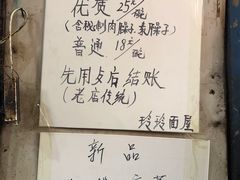 优质 25元/碗
(含秘制肉臊子.素臊子)
普通 18元/碗
先用后结账
(老店传统)
玲玲面屋
新品